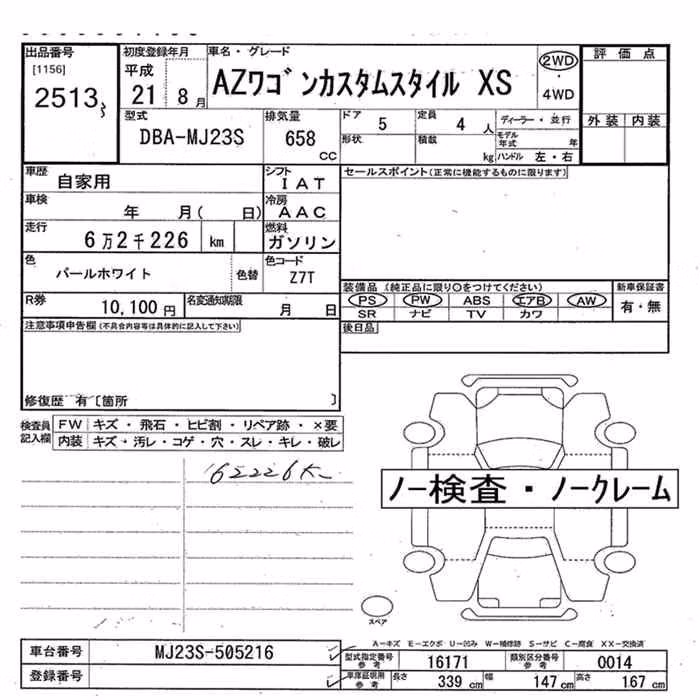 出品番号
[1156]
2513
初度登録年月
平成
21 8月
車名・グレード
AZワゴンカスタムスタイル XS
2WD
・
4WD
評価点
外装 内装
型式
DBA-MJ23S
排気量
658
cc
ドア 5
定員 4 人
形状
積載 kg
ディーラー・並行
モデル年式 年
ハンドル 左・右
車歴
自家用
シフト
IAT
車検
年 月( 日)
冷房
AAC
走行
6万2千226 km
燃料
ガソリン
色
パールホワイト
色替
色コード
Z7T
R券
10,100円
名変通知期限
月 日
セールスポイント(正常に機能するものに限ります)
装備品(純正品に限り○をつけてください)
新車保証書
PS PW ABS エアB AW
SR ナビ TV カワ
有・無
後日品
注意事項申告欄(不具合内容等は具体的に記入して下さい)
修復歴 有〔箇所 〕
検査員
記入欄
FW キズ・飛石・ヒビ割・リペア跡・×要
内装 キズ・汚レ・コゲ・穴・スレ・キレ・破レ
62226K
ノー検査・ノークレーム
スペア
A-キズ E-エクボ U-凹み W-補修跡 S-サビ C-腐食 XX-交換済
車台番号
MJ23S-505216
登録番号
型式指定番号
参考
16171
類別区分番号
参考
0014
車庫証明用
参考
長さ 339 cm
幅 147 cm
高さ 167 cm